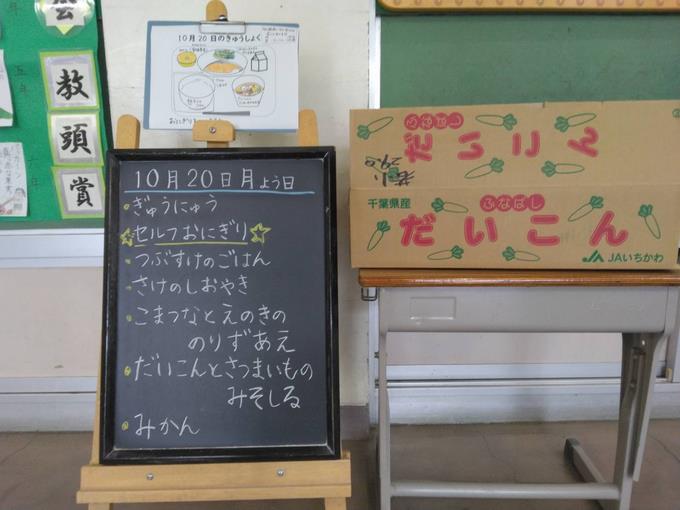 教
頭
賞
10月20日のきゅうしょく
おにぎり
10月20日月よう日
ぎゅうにゅう
セルフおにぎり
つぶすけのごはん
さけのしおやき
こまつなとえのきの
のりずあえ
だいこんとさつまいもの
みそしる
みかん
ふなばし
だいこん
千葉県産
ふなばし
だいこん
JAいちかわ